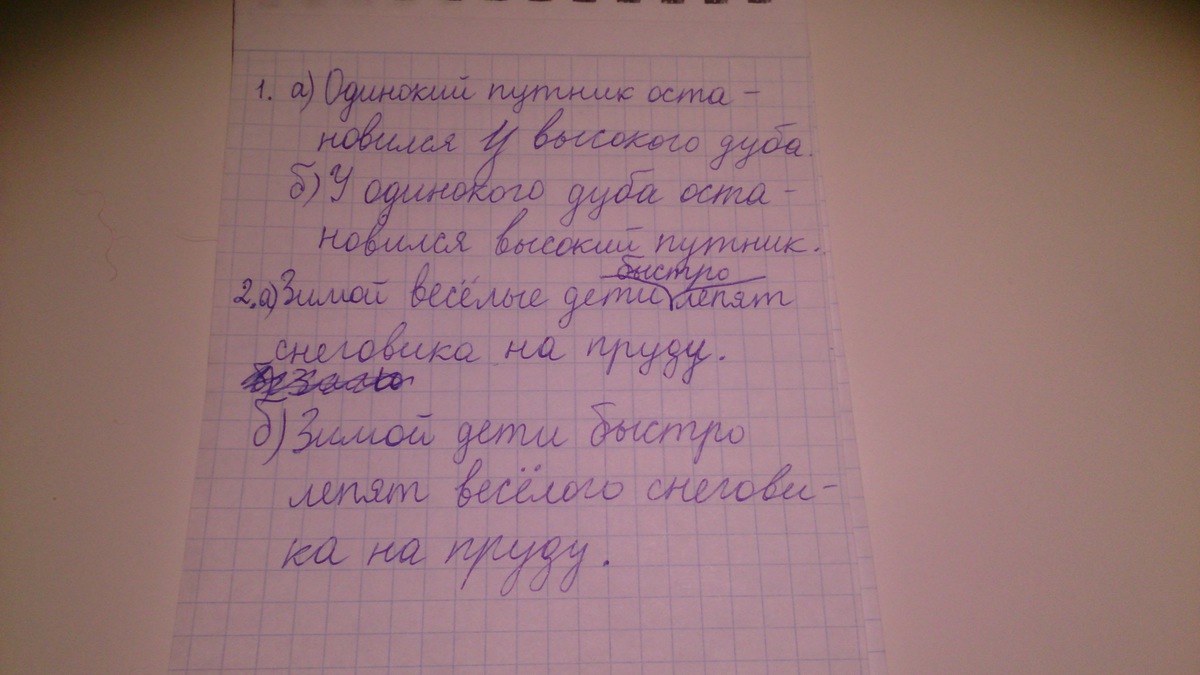 1. а) Одинокий путник оста -
новился у высокого дуба.
б) У одинокого дуба оста -
новился высокий путник.
быстро
2. а) Зимой весёлые дети лепят
снеговика на пруду.
б) Зимой дети быстро
лепят весёлого снегови -
ка на пруду.